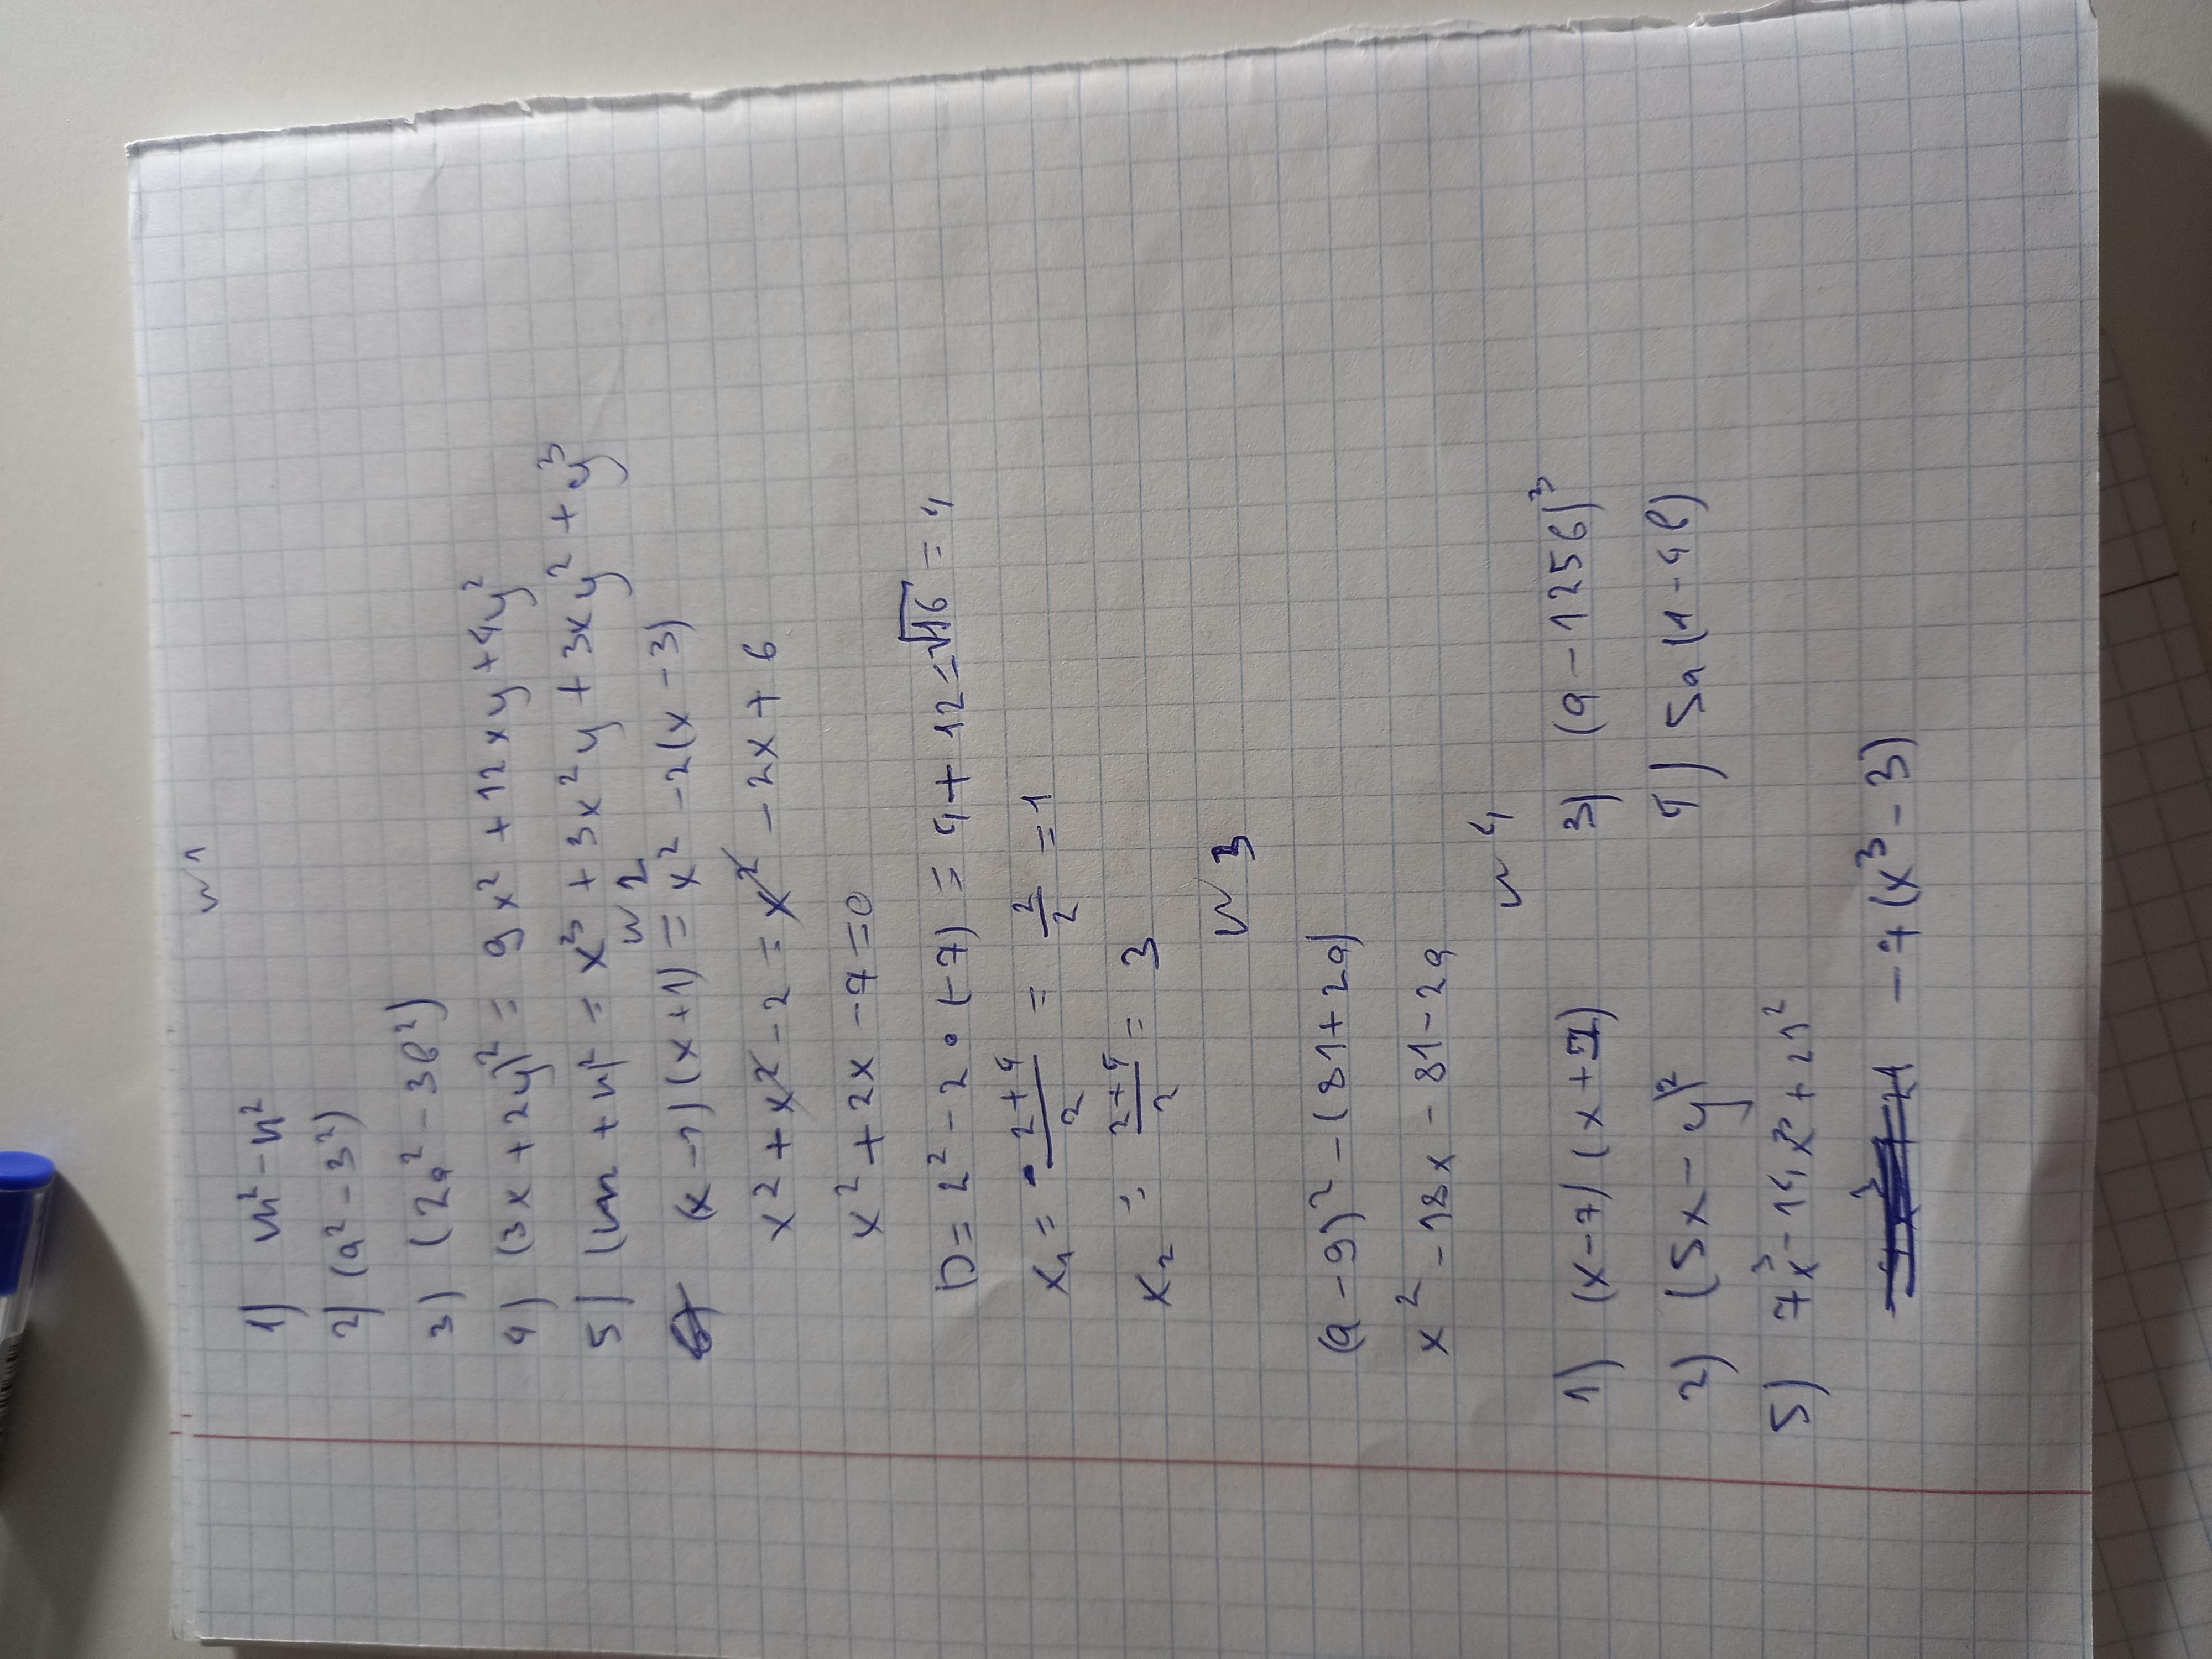 № 1
1) m² - n²
2) (a² - 3²)
3) (2a² - 3b²)
4) (3x + 2y)² = 9x² + 12xy + 4y²
5) (m + n)² = x³ + 3x²y + 3xy² + y³
№ 2
(x - 1)(x + 1) = x² - 2(x - 3)
x² + x² - 2 = x² - 2x + 6
x² + 2x - 7 = 0
D = 2² - 2 • (-7) = 4 + 12 = √16 = 4
x₁ = - 2+4/2 = 2/2 = 1
x₂ = 2+4/2 = 3
№ 3
(a - 9)² - (81 + 2a)
x² - 18x - 81 - 2a
№ 4
1) (x - 7)(x + 7) 3) (a - 125b)³
2) (5x - y)² 4) 5a(1 - 4b)
5) 7x³ - 14x² + 21²
- 7(x³ - 3)